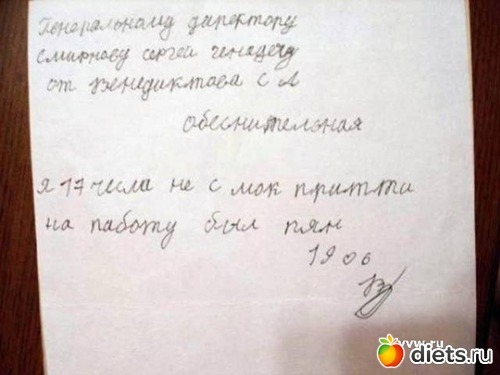 Генеральному директору
Смирнову сергей генадечу
от Венедиктова С Л
обеснительная
я 17 числа не с мок притти
на работу был пян
19 06
diets.ru